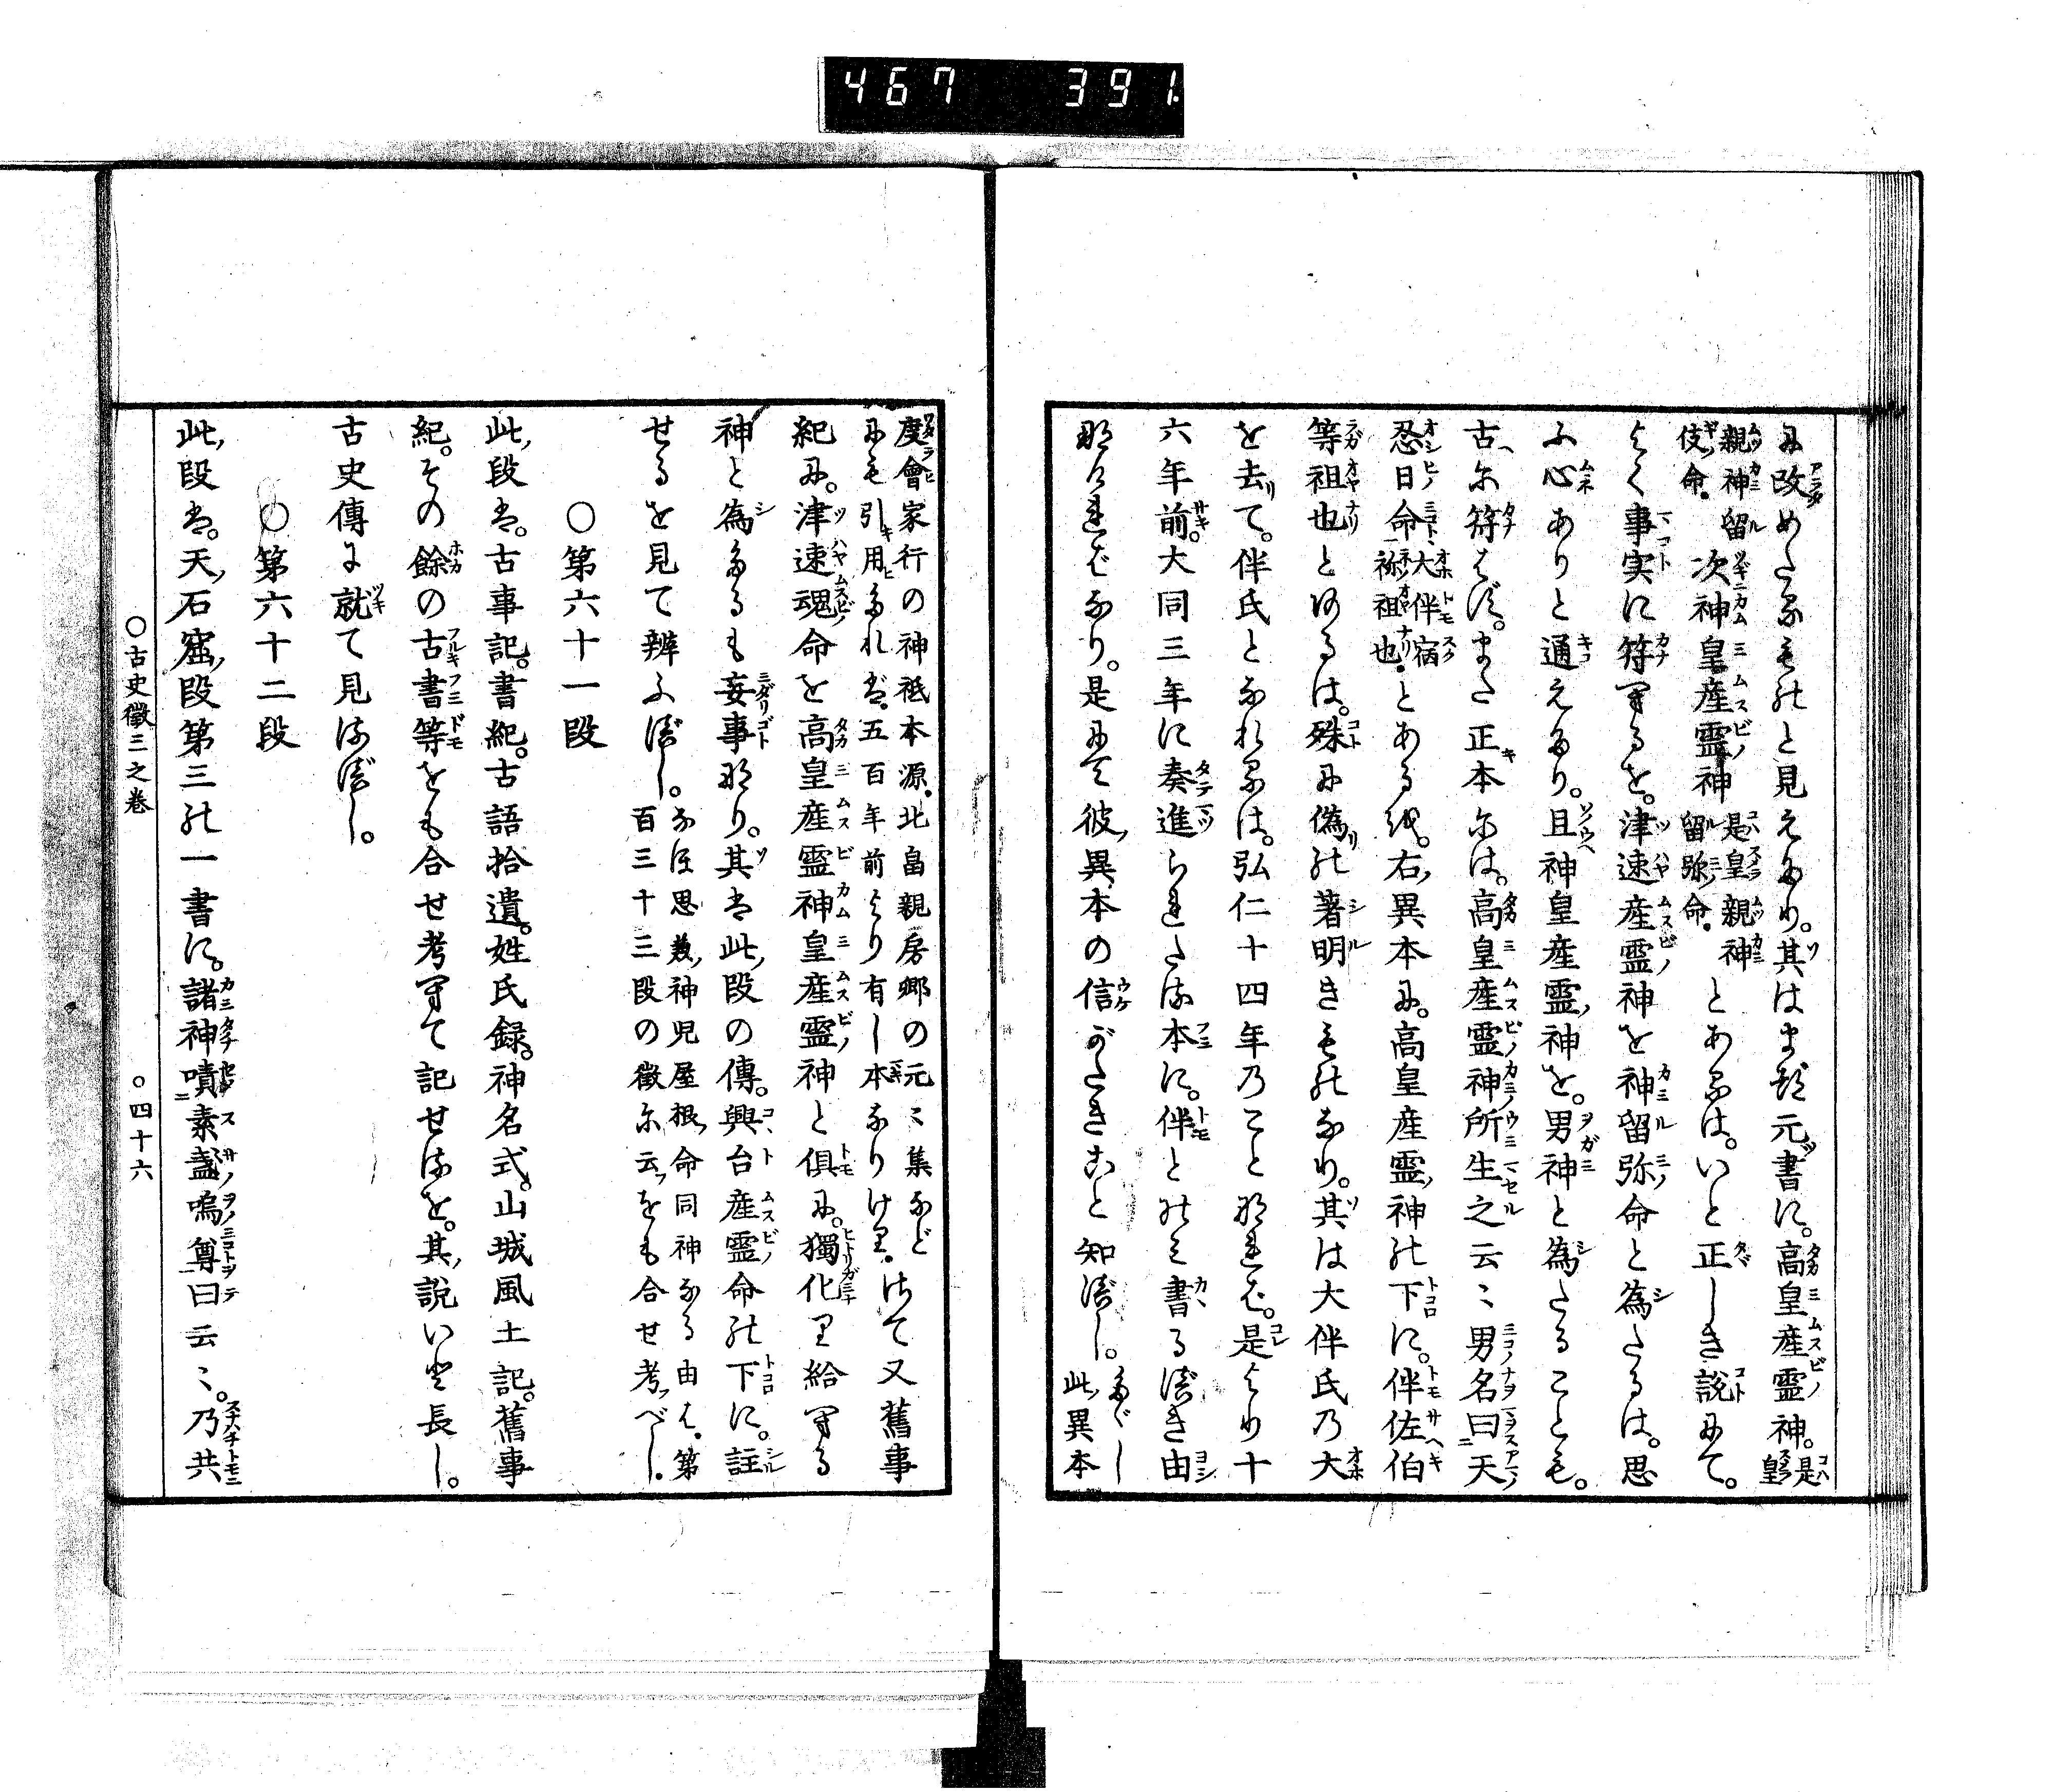 467 391
に改めたるものと見えたり。其はまづ元書に。高皇産霊神。是皇
親神留伎命。次神皇産霊神是皇親神留弥命。とあるは。いと正しき説にて。
よく事実に符へるを。津速産霊神を神留弥命と為たるは。思
ふ心ありと通えたり。且神皇産霊神を。男神と為たることも。
古に符はず。また正本には。高皇産霊神所生之云〻男名曰天
忍日命大伴宿祢祖也。とある を。右異本に。高皇産霊神の下に。伴佐伯
等祖也とあるは。殊に偽の著明きものなり。其は大伴氏乃大
を去て。伴氏となれるは。弘仁十四年乃こと なれば。是より十
六年前。大同三年に奏進られたる本に。伴とのみ書る べき由
なければなり。是にて彼異本の信がたきこと知べし。但し此異本
度會家行の神祇本源。北畠親房卿の元〻集など
にも引用たれば。五百年前より有し本なりけり。さて又舊事
紀に。津速魂命を高皇産霊神神皇産霊神と倶に。獨化り給へる
神と為たるも妄事なり。其は此段の傳。興台産霊命の下に。註
せるを見て辨ふべし。なほ思兼神児屋根命同神なる由は。第百三十三段の徴に云をも合せ考べし。
○第六十一段
此段は。古事記。書紀。古語拾遺。姓氏録。神名式。山城風土記。舊事
紀。その餘の古書等をも合せ考へて記せるを。其説いと長し。
古史傳に就て見るべし。
○第六十二段
此段は。天石窟段第三の一書に。諸神嘖素盞嗚尊曰云〻。乃共
○古史徴三之巻 ○四十六